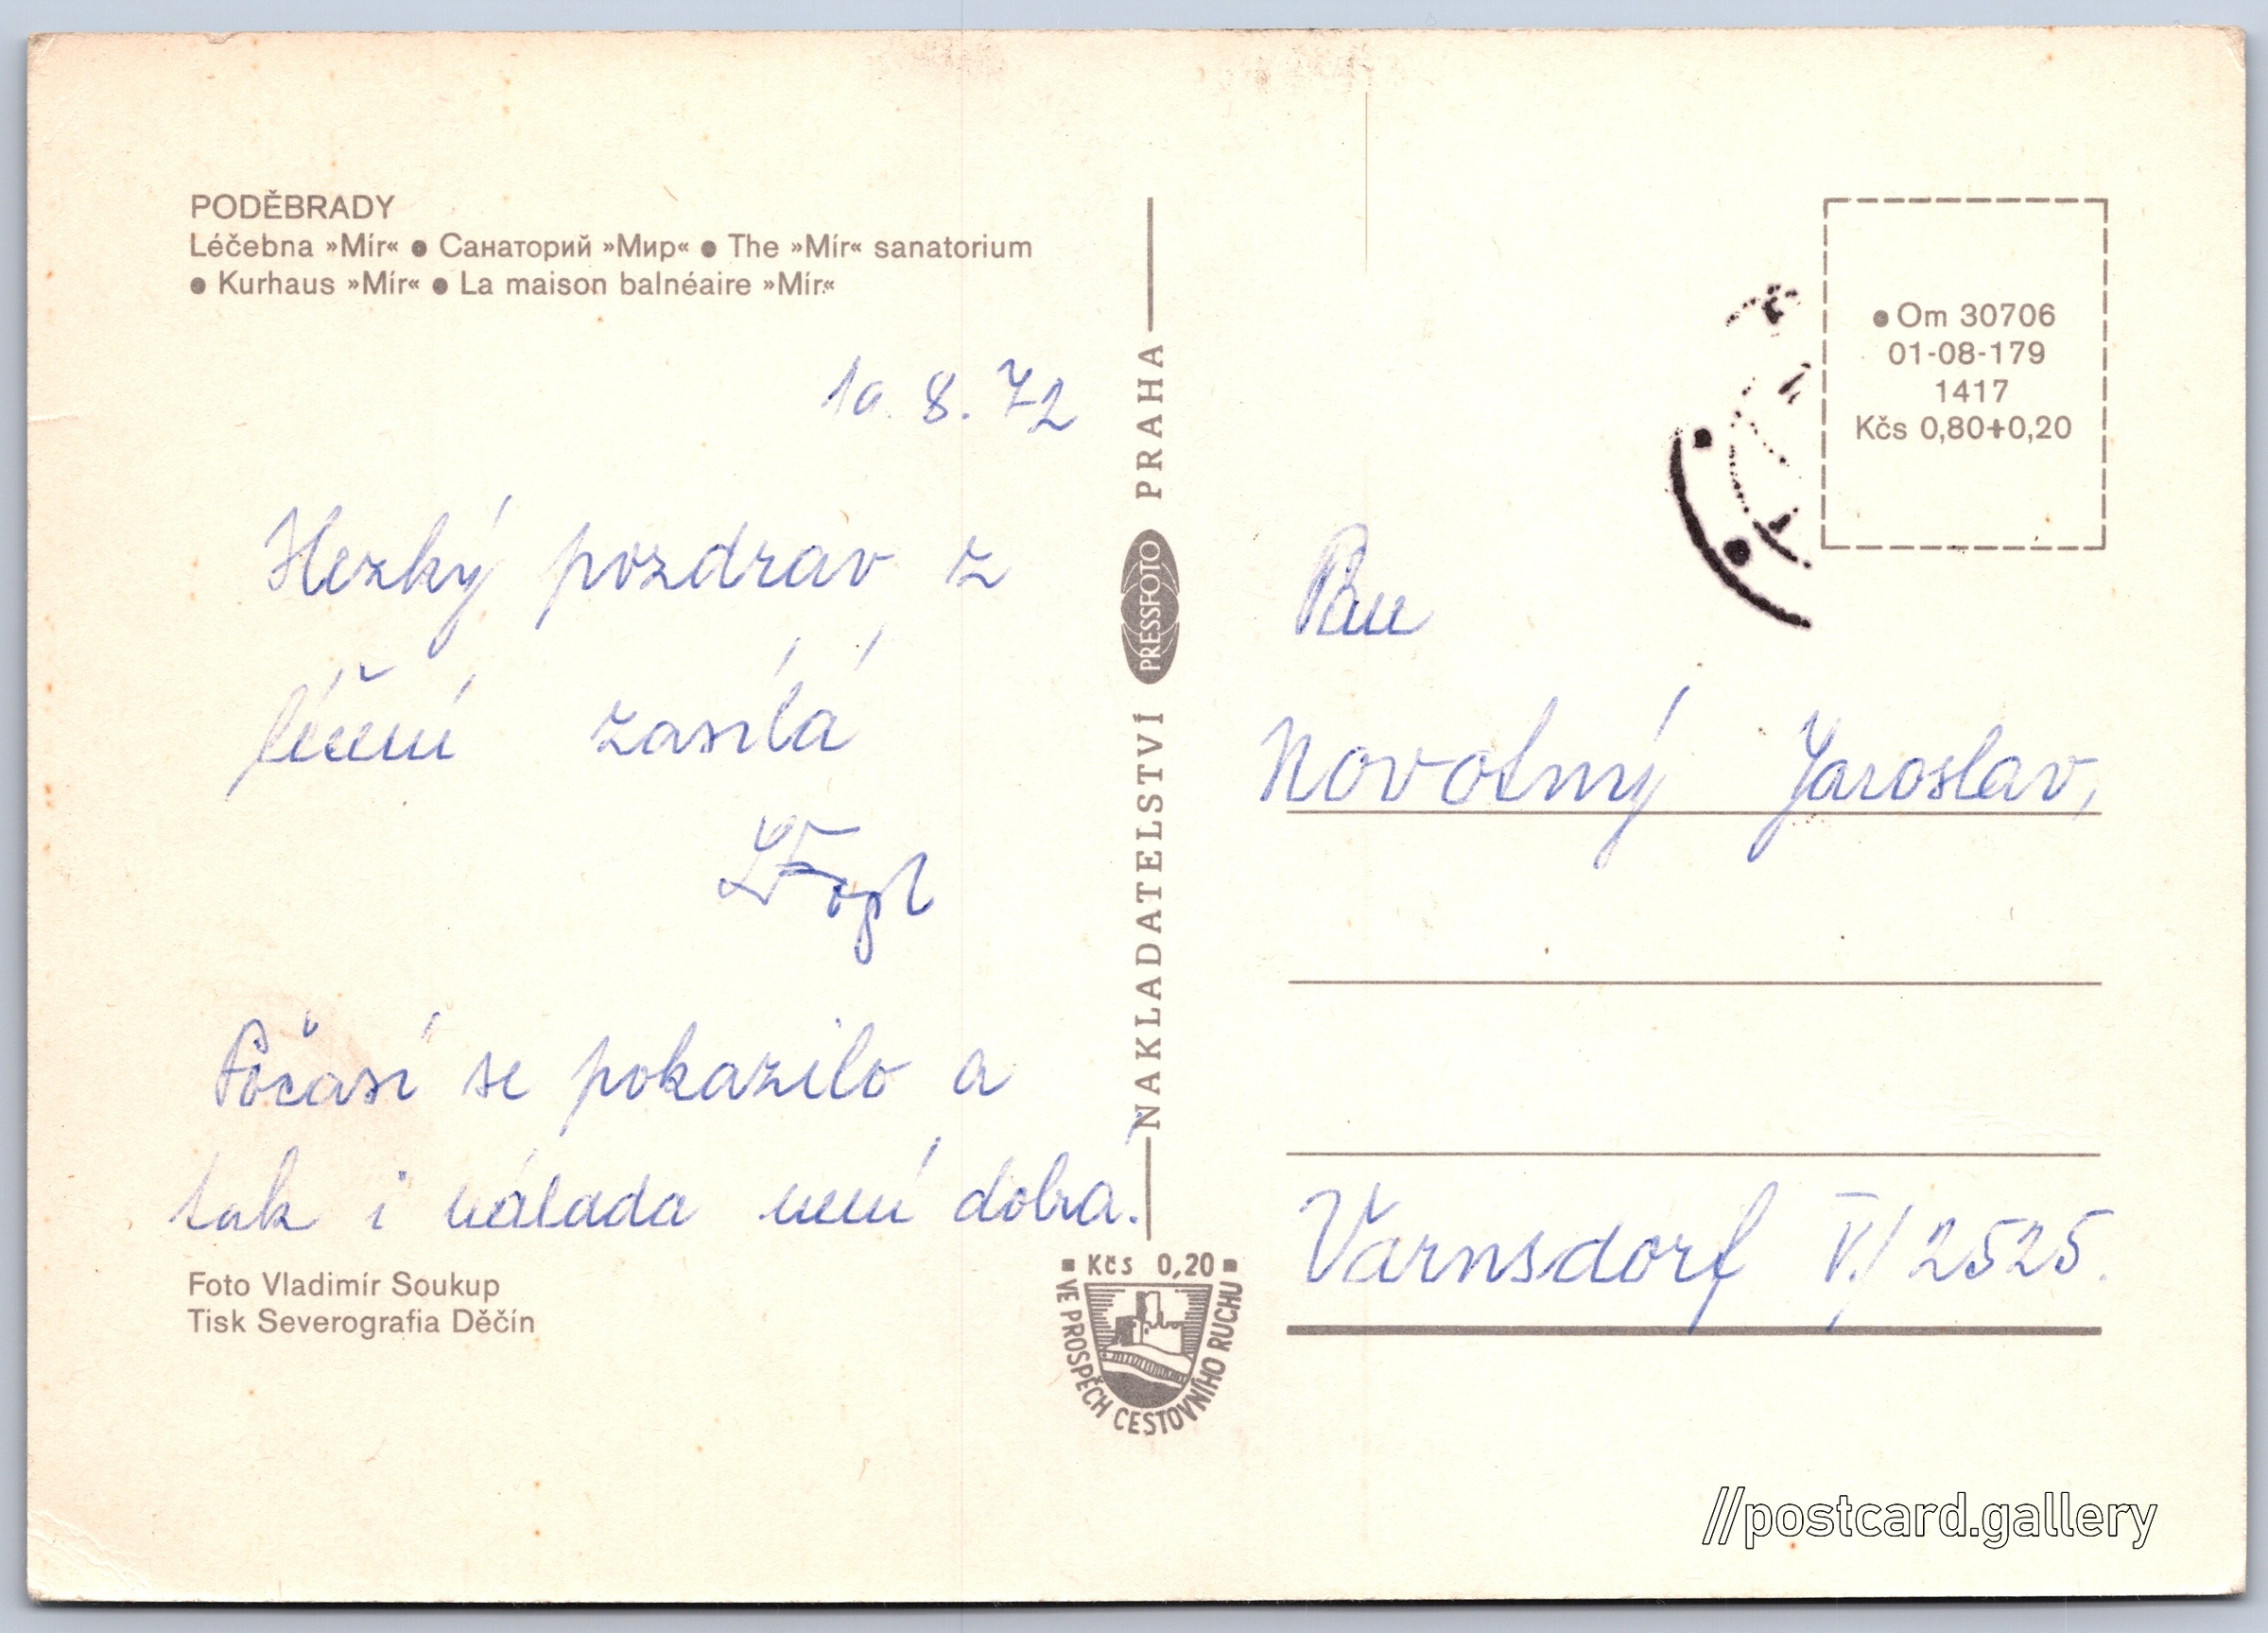 PODĚBRADY
Léčebna »Mír« ● Санаторий »Мир« ● The »Mír« sanatorium
● Kurhaus »Mír« ● La maison balnéaire »Mír«
10. 8. 72
Hezký pozdrav z
léčení zasílá
Počasí se pokazilo a
tak i nálada není dobrá.
Foto Vladimír Soukup
Tisk Severografia Děčín
NAKLADATELSTVÍ PRESSFOTO PRAHA
Kčs 0,20
VE PROSPĚCH CESTOVNÍHO RUCHU
● Om 30706
01-08-179
1417
Kčs 0,80+0,20
Pan
Novotný Jaroslav,
Varnsdorf V./2525.
//postcard.gallery